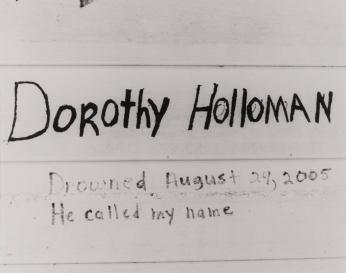 DOROthy HOlloMAN
Drowned August 29, 2005
He called my name